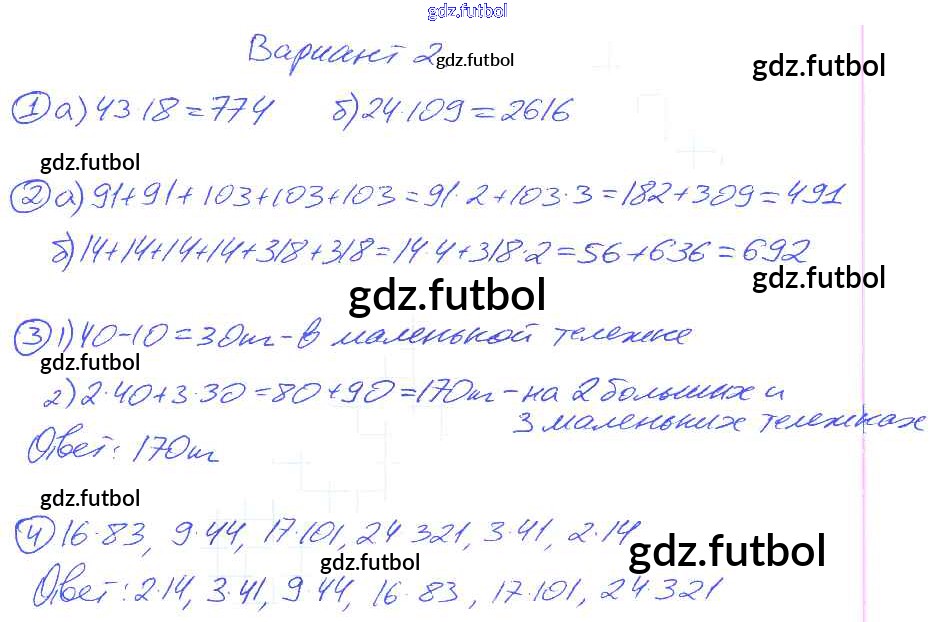 gdz.futbol
Вариант 2 gdz.futbol
gdz.futbol
① а) 43·18=774 б) 24·109=2616
gdz.futbol
② а) 91+91+103+103+103=91·2+103·3=182+309=491
б) 14+14+14+14+318+318=14·4+318·2=56+636=692
gdz.futbol
gdz.futbol
③ 1) 40-10=30 кг - в маленькой тележке
gdz.futbol
2) 2·40+3·30=80+90=170 кг - на 2 больших и
3 маленьких тележках
Ответ: 170 кг
gdz.futbol
④ 16·83, 9·44, 17·101, 24·321, 3·41, 2·14
gdz.futbol
gdz.futbol
Ответ: 2·14, 3·41, 9·44, 16·83, 17·101, 24·321